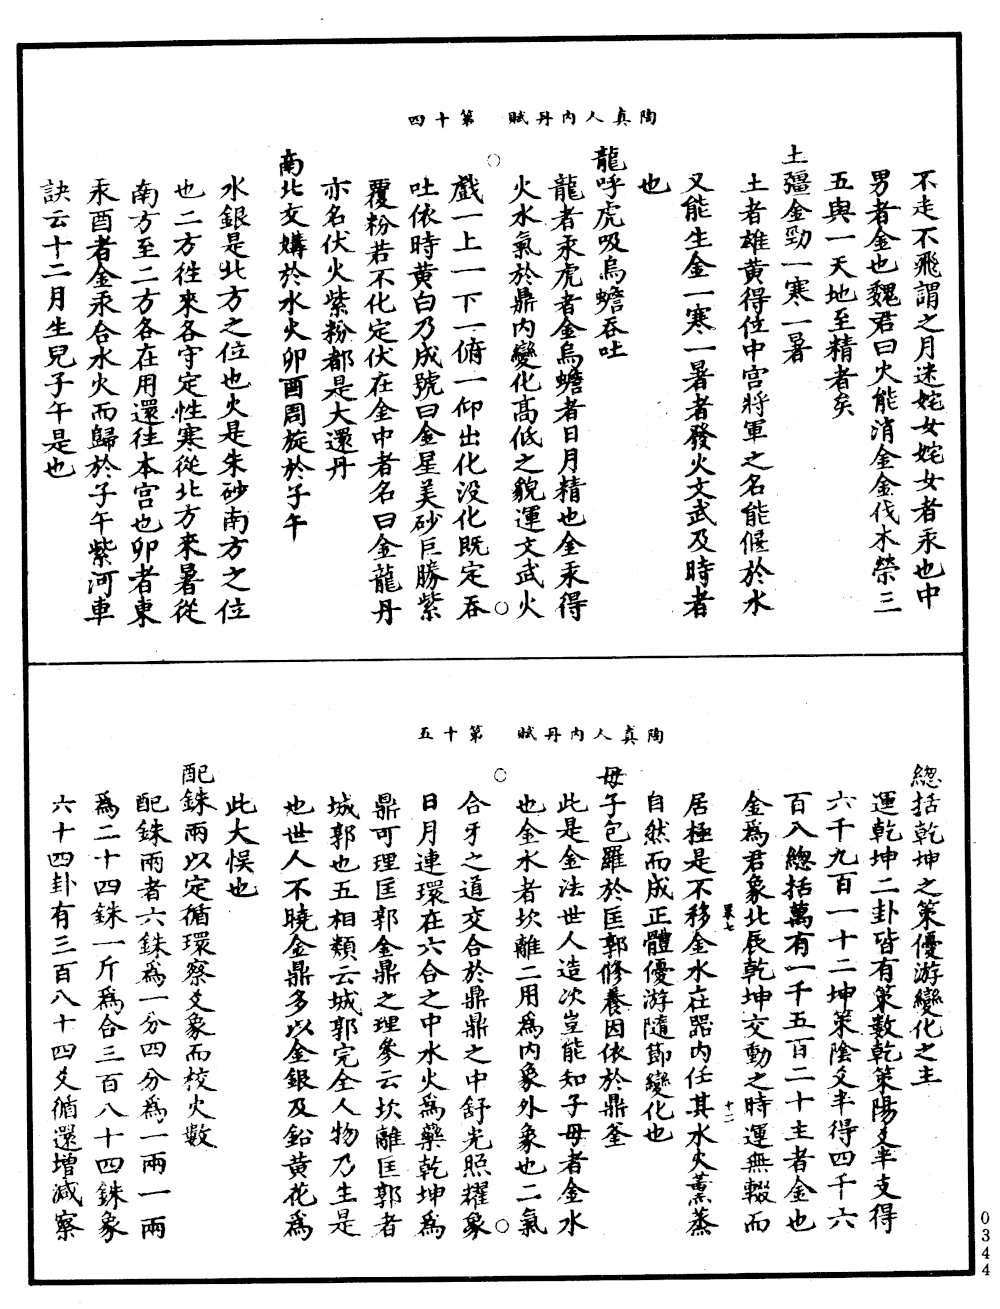 不走不飛謂之月迷姹女姹女者汞也中
男者金也魏君曰火能消金金伐木榮三
五與一天地至精者矣
土彊金勁一寒一暑
土者雄黃得位中宮將軍之名能偃於水
又能生金一寒一暑者發火文武及時者
也
龍呼虎吸烏蟾吞吐
龍者汞虎者金烏蟾者日月精也金汞得
火水氣於鼎內變化高低之貌運文武火
陶真人內丹賦　第十四
戲一上一下一俯一仰出化沒化既定吞
吐依時黃白乃成號曰金星美砂巨勝紫
覆粉若不化定伏在金中者名曰金龍丹
亦名伏火紫粉都是大還丹
南北交媾於水火卯酉周旋於子午
水銀是北方之位也火是朱砂南方之位
也二方徃來各守定性寒從北方來暑從
南方至二方各在用還往本宮也卯者東
汞酉者金汞合水火而歸於子午紫河車
訣云十二月生兒子午是也
總括乾坤之策優游變化之主
運乾坤二卦皆有策數乾策陽爻半支得
六千九百一十二坤策陰爻半得四千六
百八總括萬有一千五百二十主者金也
金為君象北辰乾坤交動之時運無輟而
居極是不移金水在器內任其水火薰蒸
自然而成正體優游隨節變化也
母子包羅於匡郭修養因依於鼎釜
此是金法世人造次豈能知子母者金水
也金水者坎離二用為內象外象也二氣
陶真人內丹賦　第十五
合牙之道交合於鼎鼎之中舒光照耀象
日月連環在六合之中水火為藥乾坤為
鼎可理匡郭金鼎之理參云坎離匡郭者
城郭也五相類云城郭完全人物乃生是
也世人不曉金鼎多以金銀及鉛黃花為
此大悞也
配銖兩以定循環察爻象而校火數
配銖兩者六銖為一分四分為一兩一兩
為二十四銖一斤為合三百八十四銖象
六十四卦有三百八十四爻循還增減察
0344